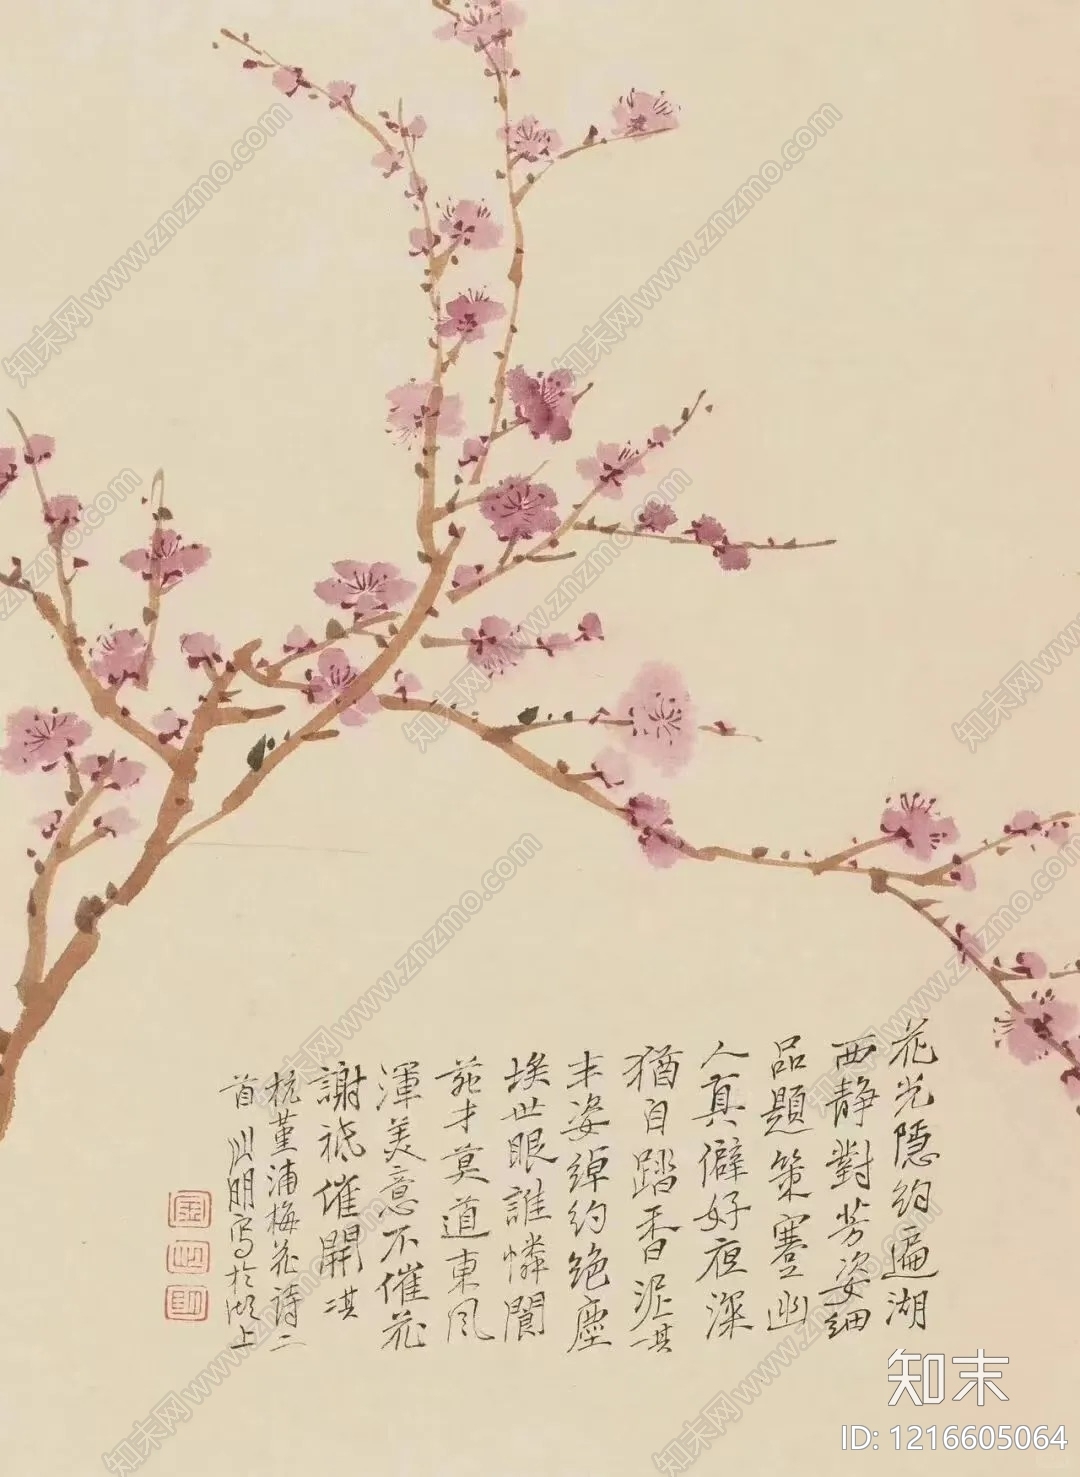 花光隱約遍湖
西靜對芳姿細
品題策蹇幽
人真僻好夜深
猶自踏香泥其一
丰姿綽約絶塵
埃世眼誰憐閬
苑才莫道東風
渾美意不催花
謝祇催開其
杭堇浦梅花詩二
首 明寫於湖上
知末
ID: 1216605064
知末网www.znzmo.com